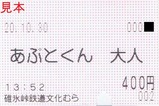 見本
20.10.30 000
あぷとくん 大人
400円
13:52
碓氷峠鉄道文化むら